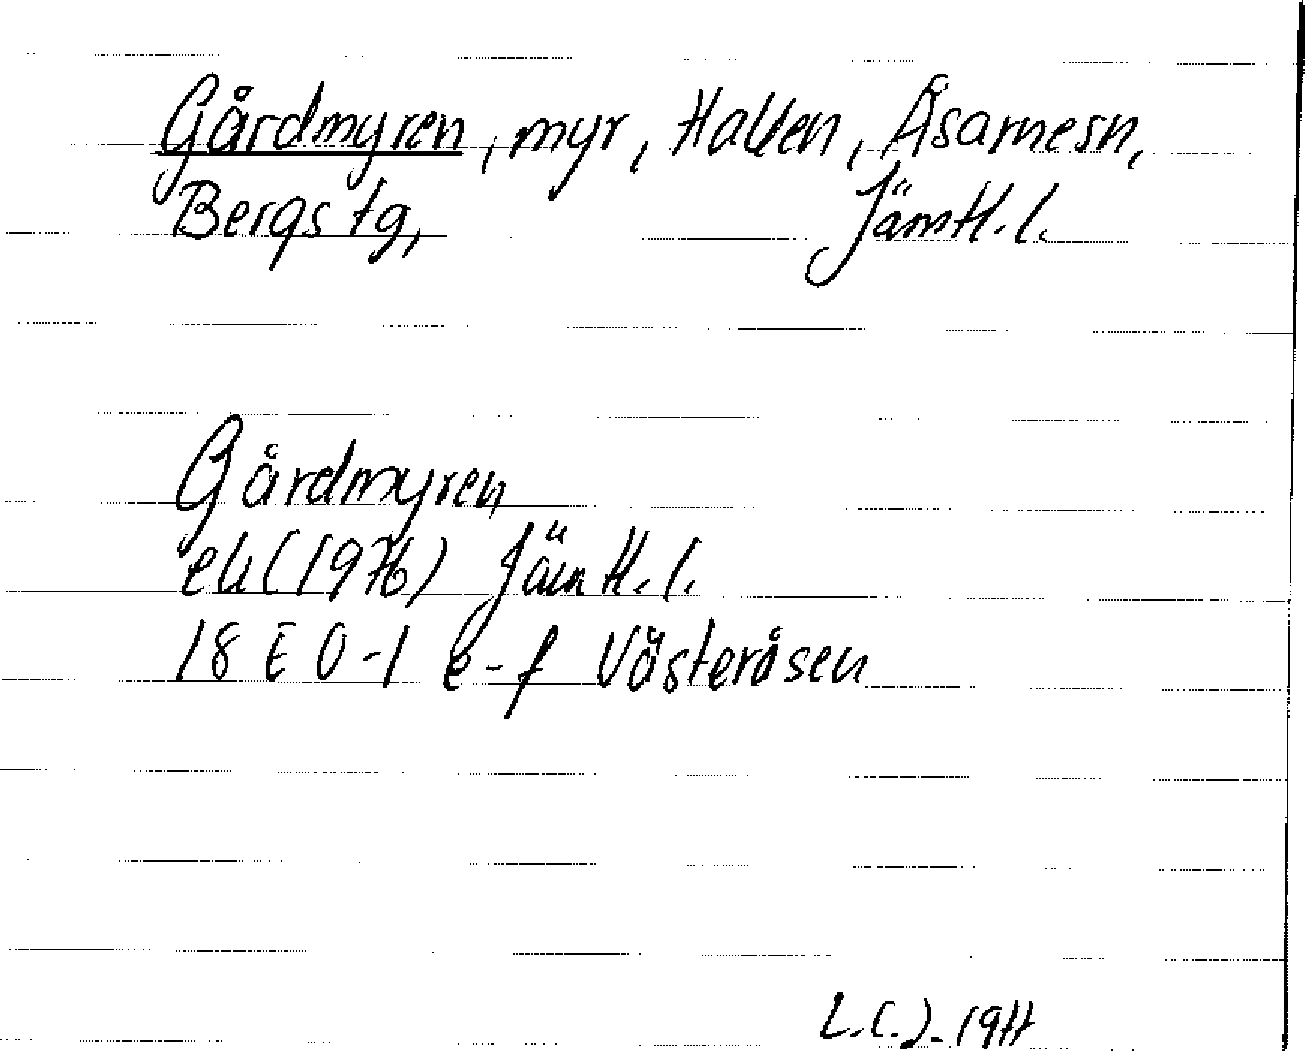 Gårdmyren, myr, Hallen, Åsarnesn,
Bergs tg, Jämtl. l.
Gårdmyren
ek (1976) Jämtl. l.
18 E 0-1 e-f Västeråsen